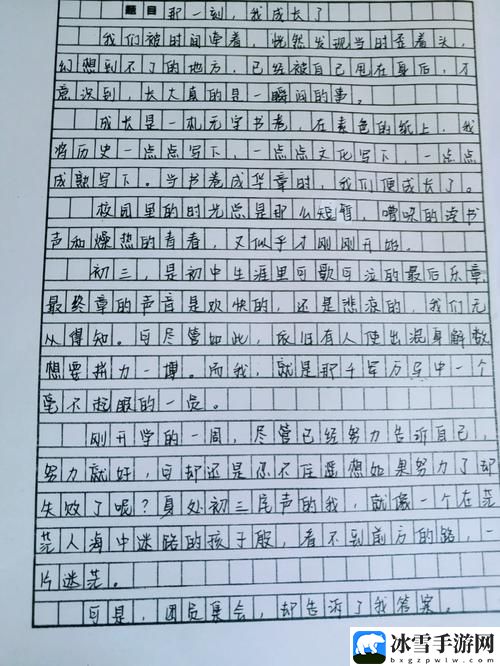 题目 那一刻，我成长了
我们被时间牵着，恍然发现当时歪着头，
幻想到不了的地方，已经被自己甩在身后，才
意识到，长大真的是一瞬间的事。
成长是一札无字书卷，在素色的纸上，我
将历史一点点写下，一点点文化写下，一点点
成熟写下。当书卷成华章时，我们便成长了。
校园里的时光总是那么短暂，嘈杂的读书
声和燥热的青春，又似乎才刚刚开始。
初三，是初中生涯里可歌可泣的最后乐章，
最终章的声音是欢快的，还是悲凉的，我们无
从得知。可尽管如此，依旧有人使出浑身解数
想要拼力一搏。而我，就是那千军万马中一个
毫不起眼的一员。
刚开学的一周，尽管已经努力告诉自己，
努力就好，可却还是忍不住遥想如果努力了却
失败了呢？身处初三尾声的我，就像一个在茫
茫人海中迷路的孩子般，看不到前方的路，一
片迷茫。
可是，团员集会，却告诉了我答案。
冰雪手游网
bxgzpywp.com